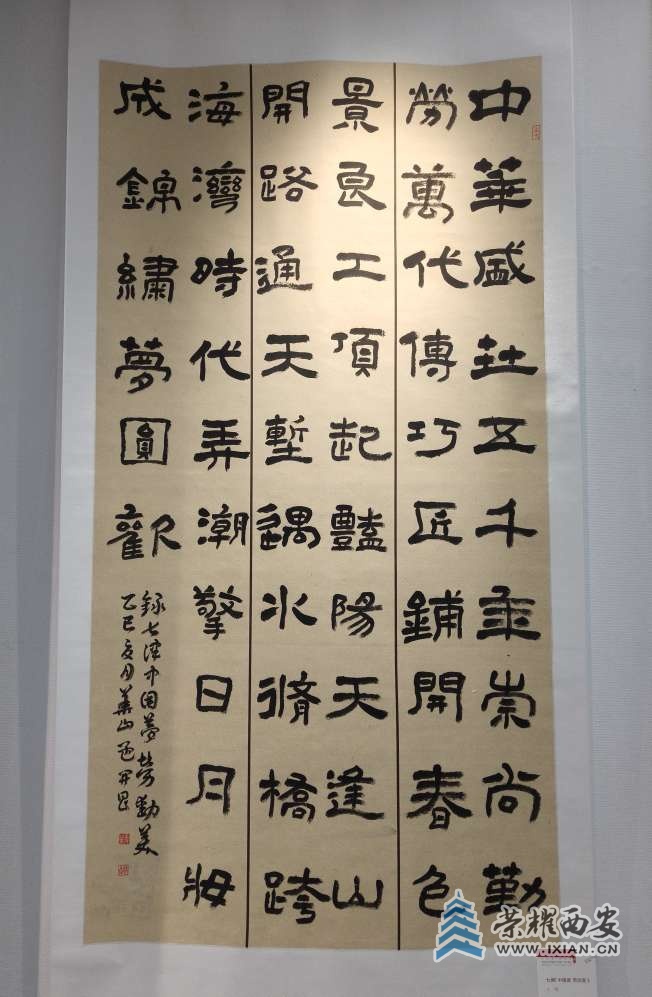 中華盛世五千年崇尚勤
勞萬代傳巧匠鋪開春色
景良工頂起豔陽天逢山
開路通天塹遇水脩橋跨
海灣時代弄潮擎日月妝
成錦繡夢圓歡
錄七律中國夢勞動美
乙巳夏月華山
荣耀西安
WWW.IXIAN.CN